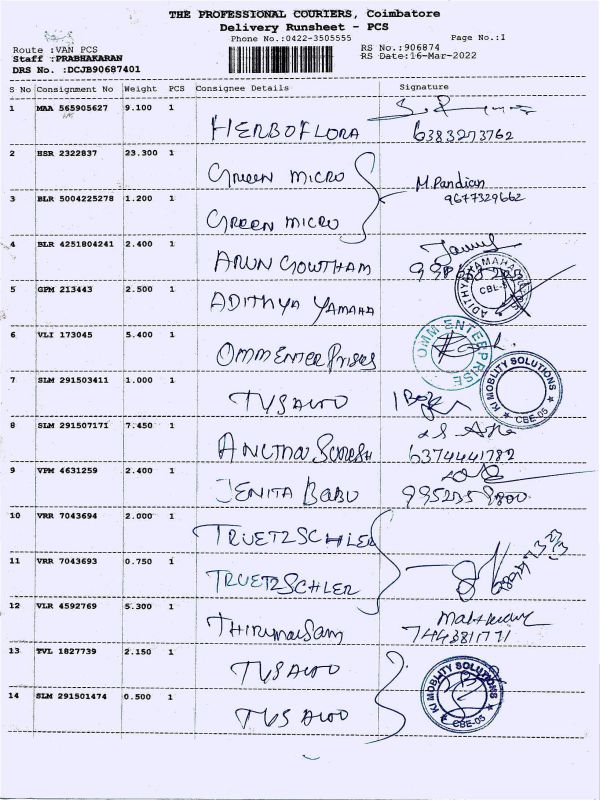 THE PROFESSIONAL COURIERS, Coimbatore
Delivery Runsheet - PCS
Phone No.:0422-3505555 Page No.:1
Route :VAN PCS RS No.:906874
Staff :PRABHAKARAN RS Date:16-Mar-2022
DRS No. :DCJB90687401
S No Consignment No Weight PCS Consignee Details Signature
1 MAA 565905627 9.100 1
HERBOFLORA 6383273762
2 HSR 2322837 23.300 1
GREEN MICRO M.Pandian
3 BLR 5004225278 1.200 1 9677329662
GREEN MICRO
4 BLR 4251804241 2.400 1
ARUN GOWTHAM
5 GPM 213443 2.500 1
ADITHYA YAMAHA
ADITHYA YAMAHA
CBE-5
6 VLI 173045 5.400 1
OMM ENTERPRISES
OMM ENTERPRISE
7 SLM 291503411 1.000 1
TVS AUTO
KI MOBLITY SOLUTIONS
CBE-05
8 SLM 291507171 7.450 1
ANITHA SURESH 6374441782
9 VPM 4631259 2.400 1
JENITA BABU
10 VRR 7043694 2.000 1
TRUETZSCHLER
11 VRR 7043693 0.750 1
TRUETZSCHLER
12 VLR 4592769 5.300 1
7443811771
13 TVL 1827739 2.150 1
TVS AUTO
KI MOBLITY SOLUTIONS
CBE-05
14 SLM 291501474 0.500 1
TVS AUTO